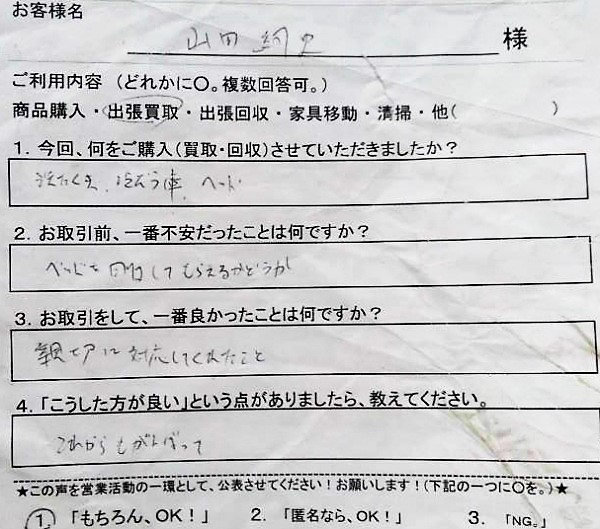 お客様名
山田 絢史 様
ご利用内容 (どれかに〇。複数回答可。)
商品購入・出張買取・出張回収・家具移動・清掃・他( )
1. 今回、何をご購入(買取・回収)させていただきましたか?
冷ぞう庫、ベッド
2. お取引前、一番不安だったことは何ですか?
ベッドを回収してもらえるかどうか
3. お取引をして、一番良かったことは何ですか?
親切に対応してくれたこと
4.「こうした方が良い」という点がありましたら、教えてください。
これからもがんばって
★この声を営業活動の一環として、公表させてください!お願いします!(下記の一つに〇を。)★
1.「もちろん、OK!」 2.「匿名なら、OK!」 3.「NG。」